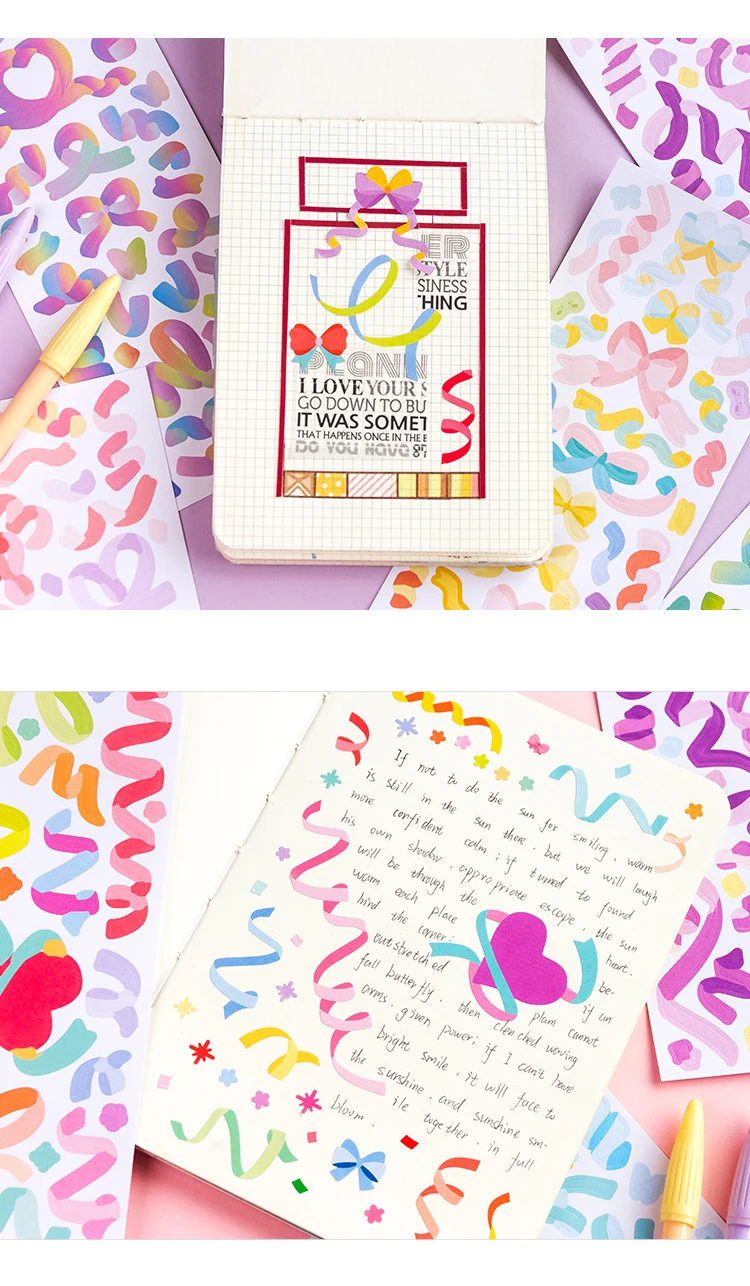 ER
STYLE
SINESS
THING
PEANN
I LOVE YOUR S
GO DOWN TO BU
IT WAS SOMET
THAT HAPPENS ONCE IN THE E
DO YOU HAVE
If not to do the sun for smiling, warm
is still in the sun there, but we will laugh
more confident calm; if turned to found
his own shadow, appropriate escape, the sun
will be through the heart.
warm each place be-
hind the corner; if an
outstretched plam cannot
fall butterfly, then clenched waving
arms, given power; if I can't have
bright smile, it will face to
the sunshine, and sunshine sm-
ile together, in full
bloom.